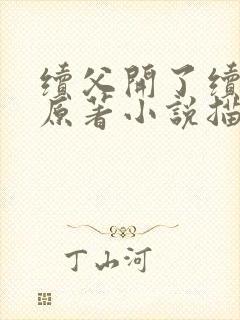 續父開了續
原著小說描
丁山河